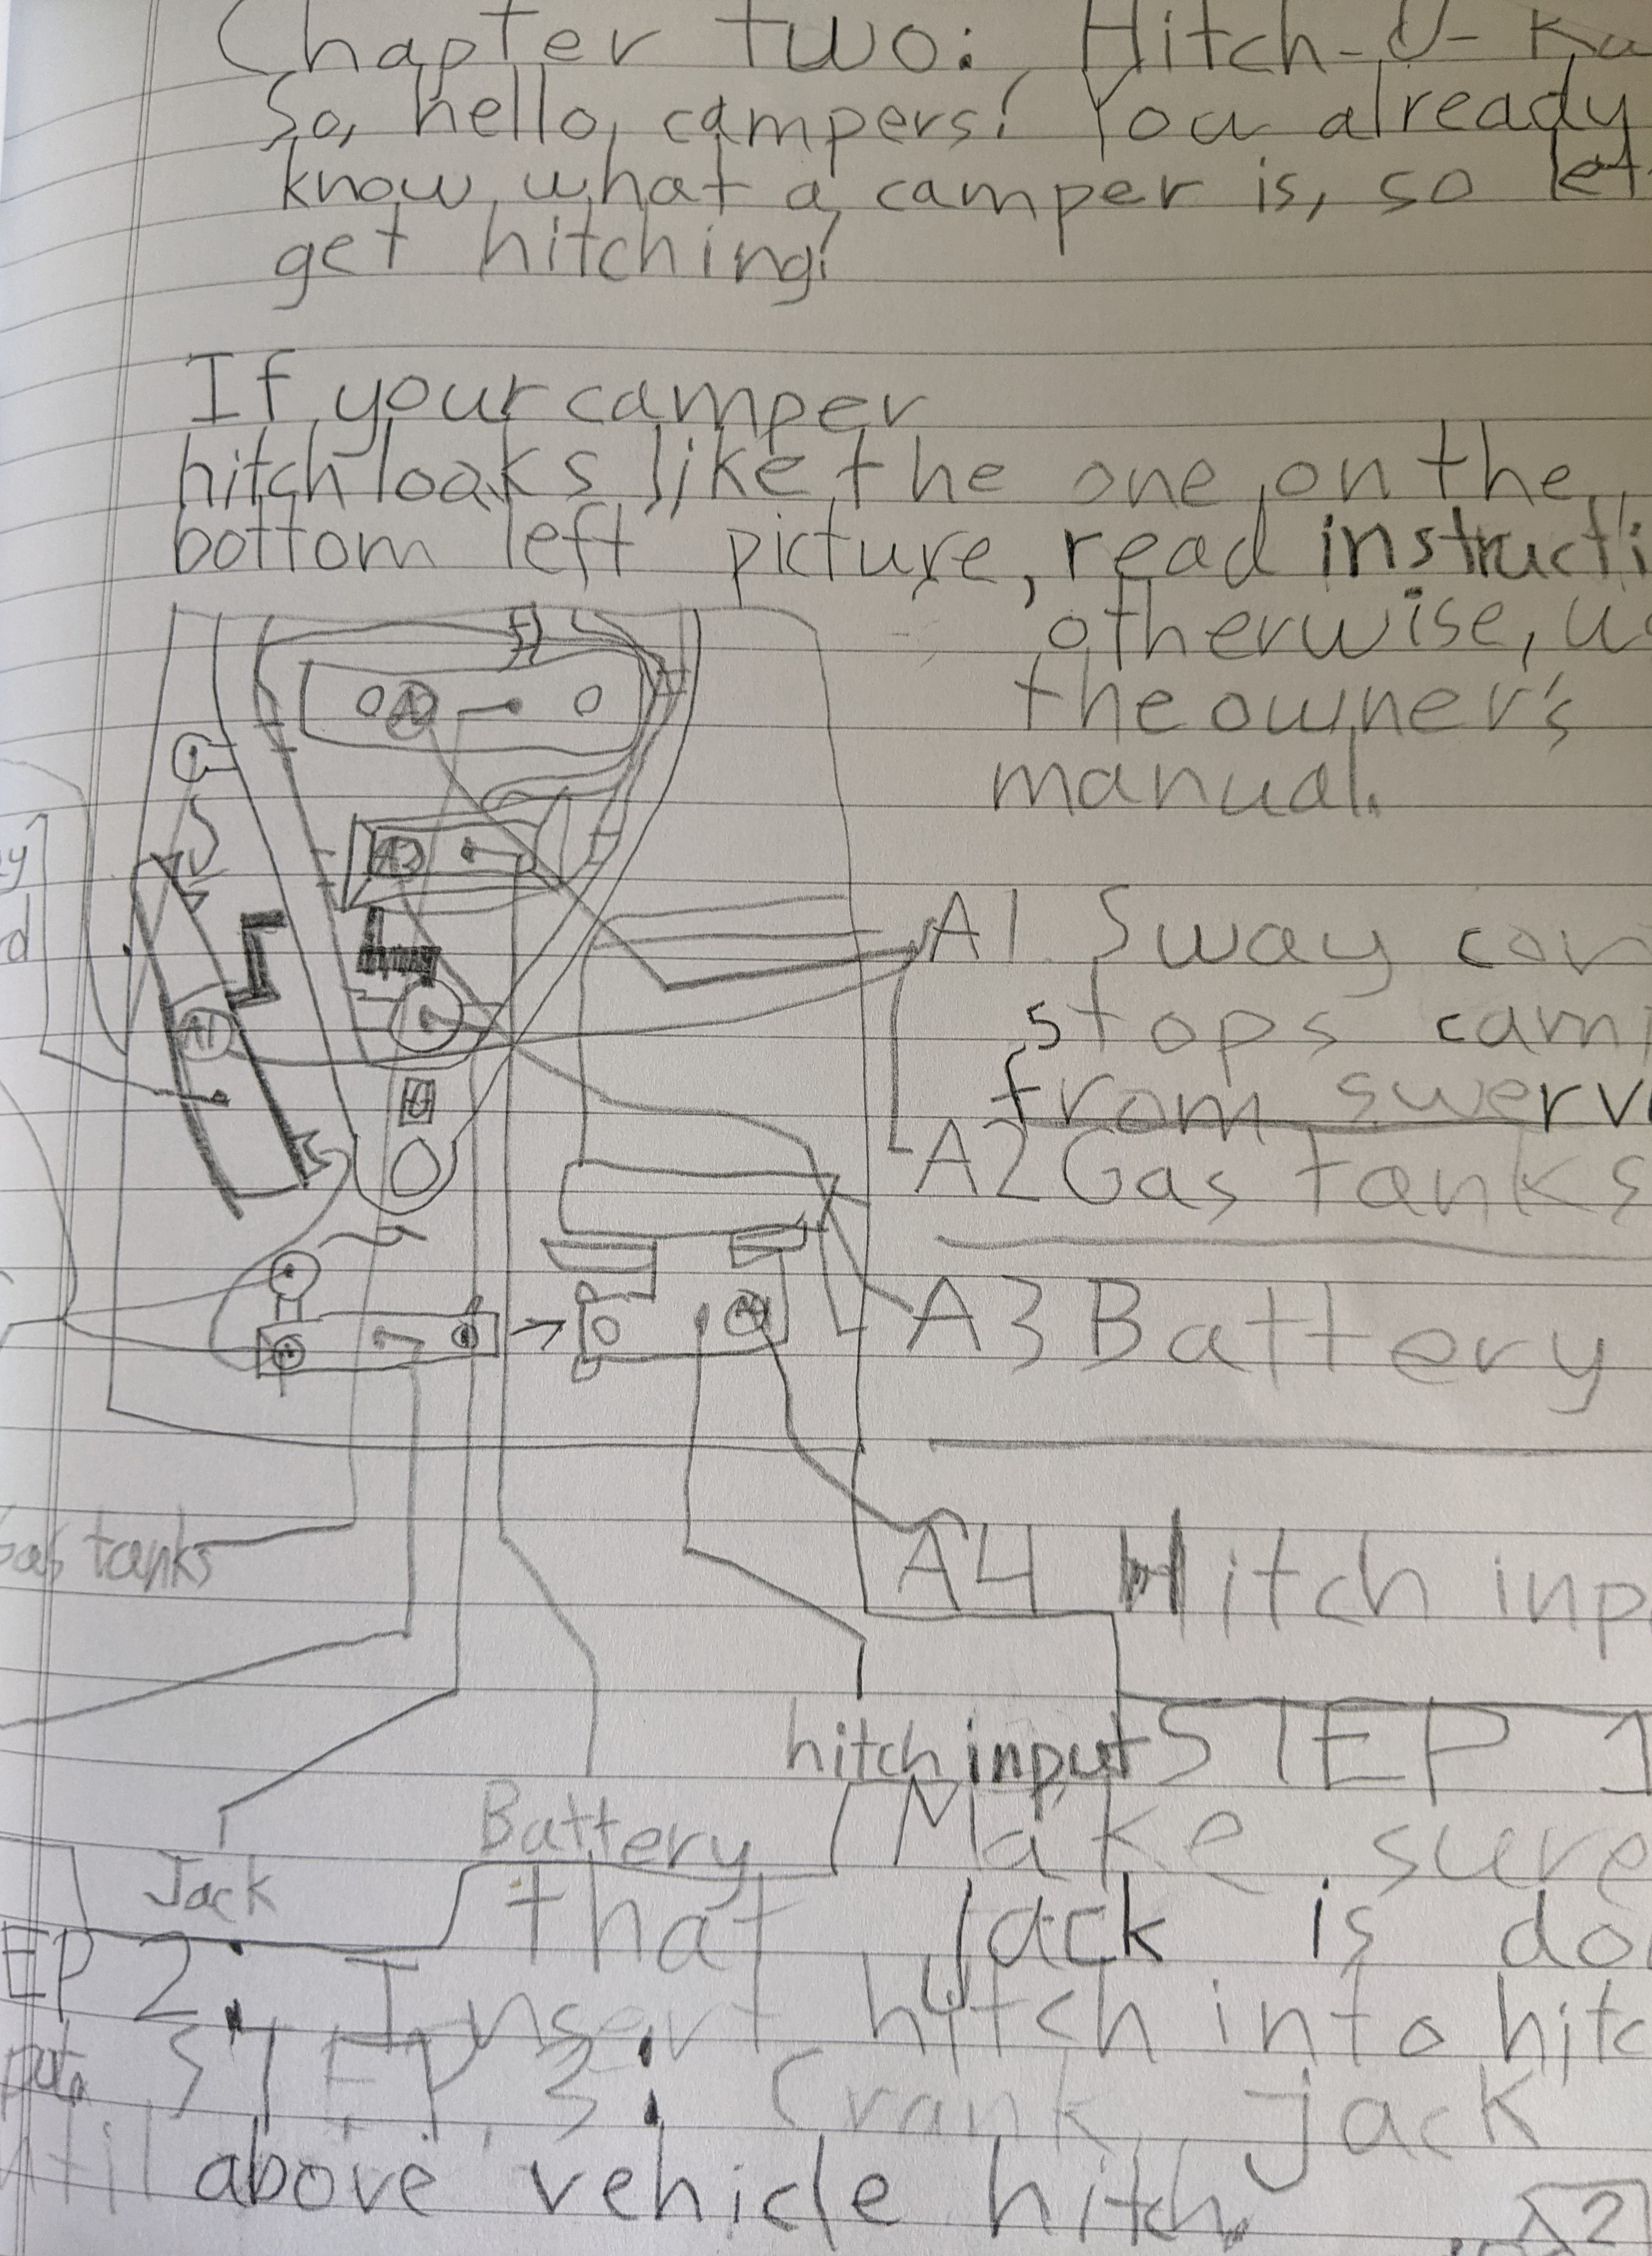 Chapter two: Hitch-U-Ka
So, hello, campers! You already
know what a camper is, so let
get hitching!
If your camper
hitch looks like the one on the
bottom left picture, read instructi
otherwise, us
the owner's
manual.
A2
A3
A1
A4
y
d
A1. Sway con
stops camp
from swervi
A2 Gas tanks
A3 Battery
A4 Hitch inp
Gas tanks
Jack
Battery
hitch input
STEP 1
Make sure
that jack is do
EP 2: Insert hitch into hitc
put. STEP 3: Crank jack
ntil above vehicle hitch.
2